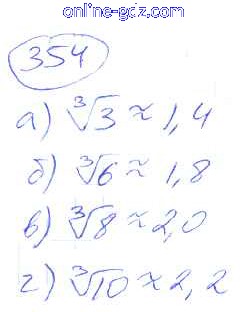 online-gdz.com
354
а) ∛3 ≈ 1,4
б) ∛6 ≈ 1,8
в) ∛8 ≈ 2,0
г) ∛10 ≈ 2,2